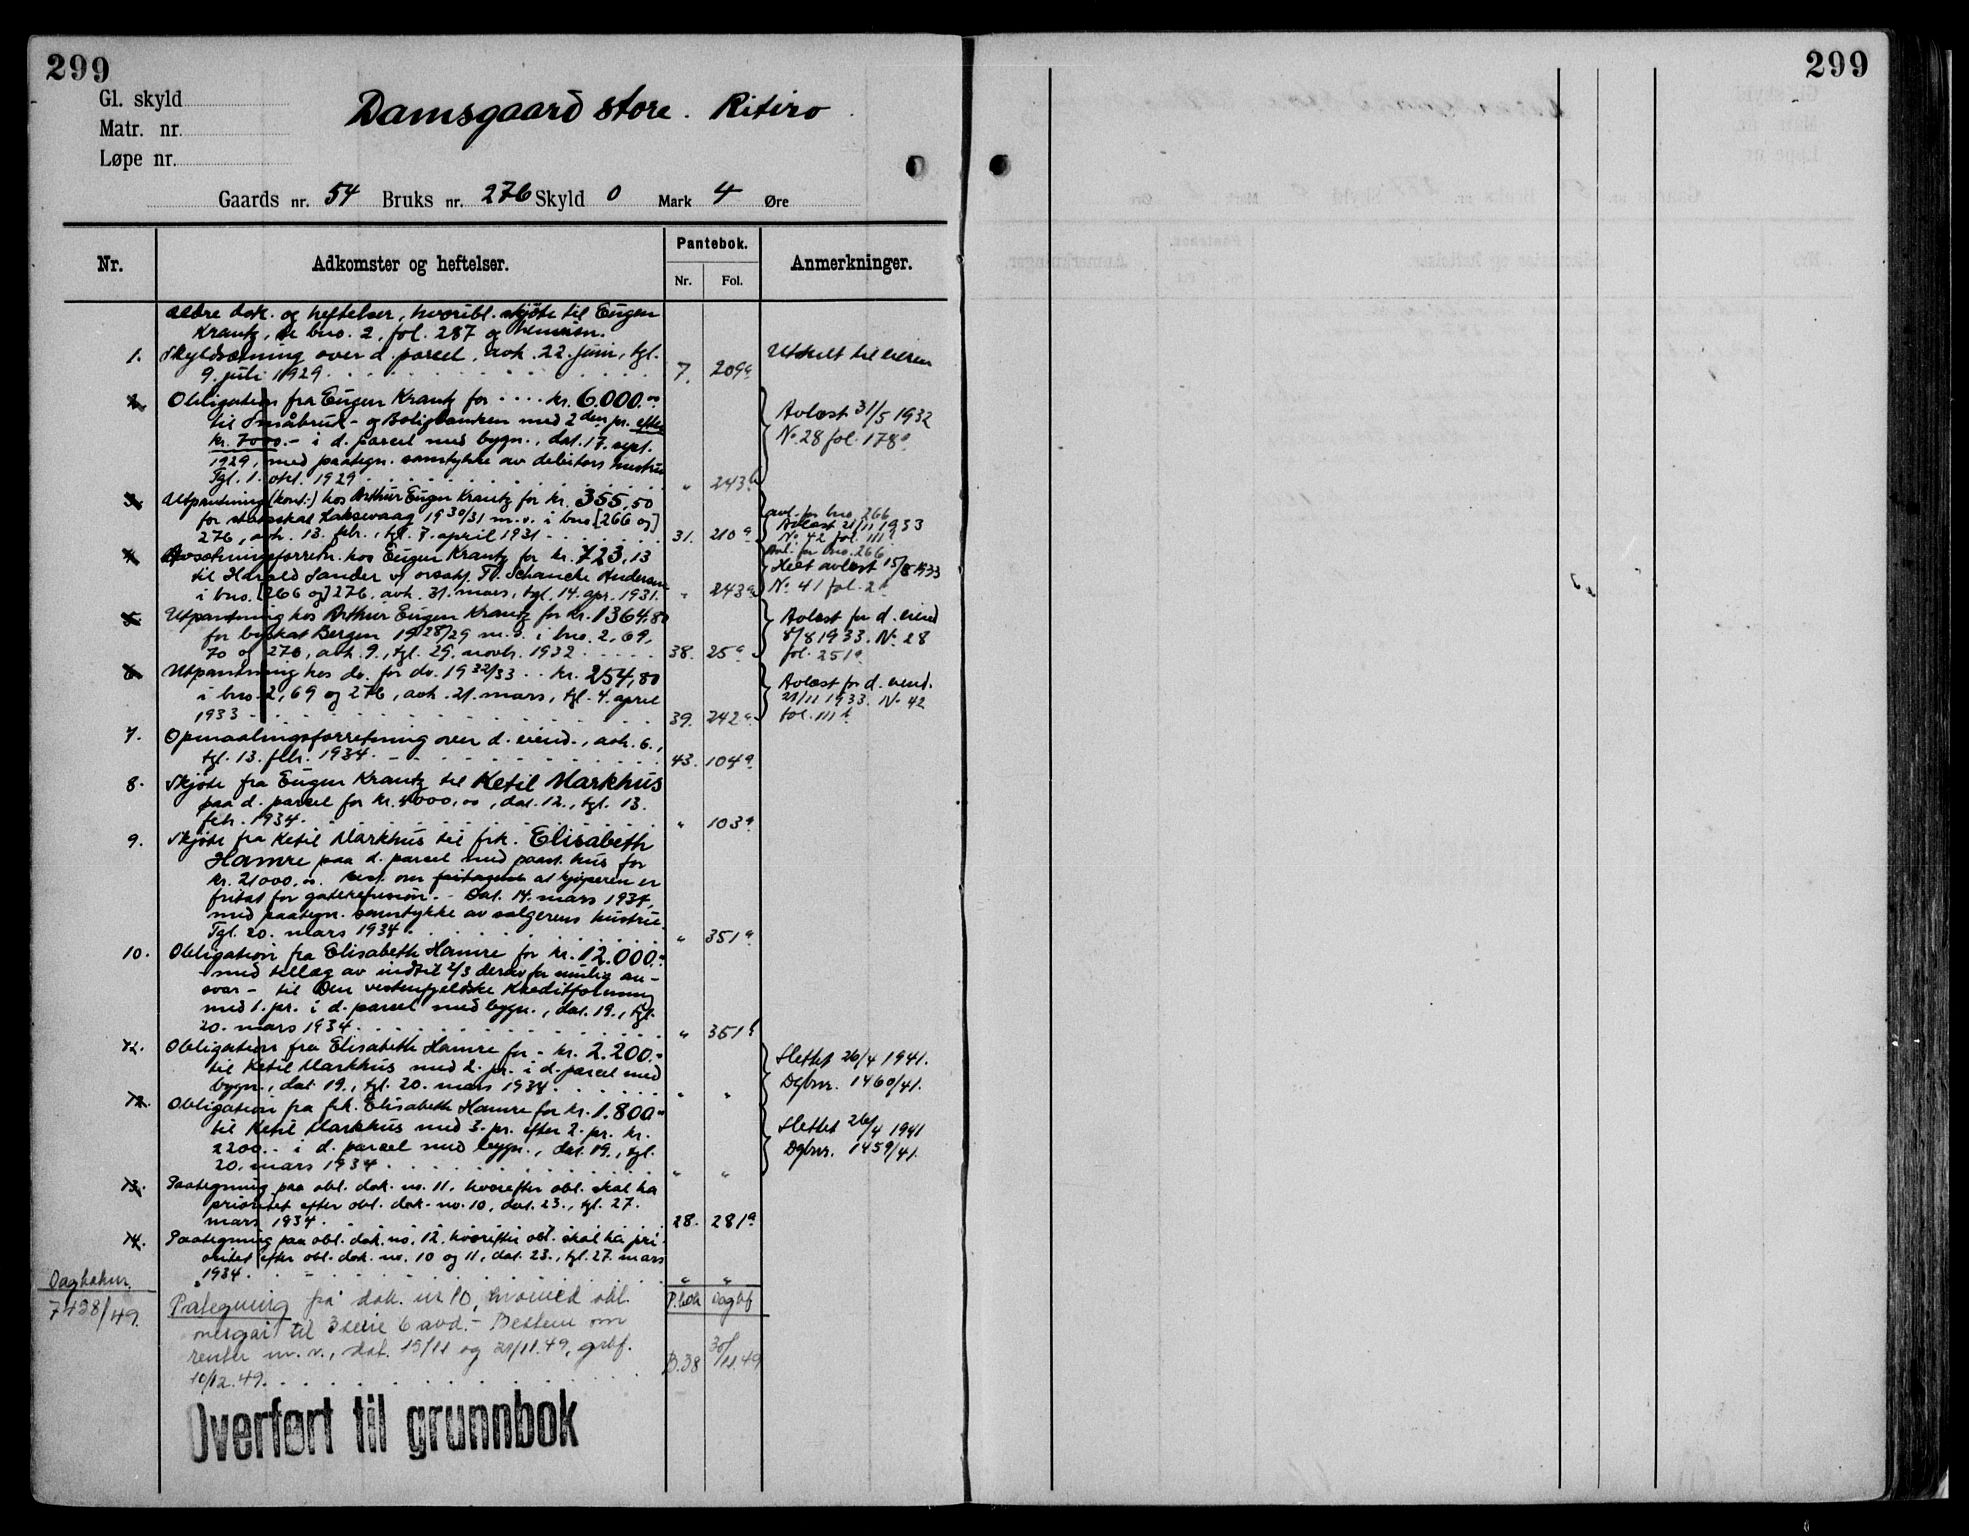 299
299
Gl. skyld
Matr. nr.
Løpe nr.
Damsgaard store. Ritiro
Gaards nr. 54 Bruks nr. 276 Skyld 0 Mark 4 Øre
Nr. Adkomster og heftelser. Pantebok. Anmerkninger.
Nr. Fol.
Ældre dok. og heftelser, hvoribl. skjøte til Eugen
Krantz, se bno. 2, fol. 287 og henvisn.
1. Skyldsætning over d. parcel, avh. 22. juni, tgl. Utskilt til eieren
9. juli 1929 7. 209a
2. Obligation fra Eugen Krantz for kr. 6.000.00
til Småbruk- og Boligbanken med 2den pr. efter Avlæst 31/5 1932
kr. 7000.- i d. parcel med bygn., dat. 17. sept. No 28 fol. 178a
1929, med paategn. samtykke av debitors hustru
Tgl. 1. okt. 1929 " 243b
3. Utpantning (kont.) hos Arthur Eugen Krantz for kr. 355,50 avl. for bno. 266
for statsskat Laksevaag 1930/31 m.v. i bno [266 og] Avlæst 21/11 1933
276, avh. 13. febr., tgl. 7. april 1931 31. 210a No 42 fol. 111a
4. Avsætningsforretn. hos Eugen Krantz for kr. 723,13 Avl. for bno. 266
til Harald Sander v/ orsakf. Th. Schancke Andersen Helt avlæst 15/8 1933
i bno. [266 og] 276, avh. 31. mars, tgl. 14. apr. 1931. " 243a No 41 fol. 2a
5. Utpantning hos Arthur Eugen Krantz for kr. 1364,80 Avlæst for d. eiend
for byskat Bergen 1928/29 m.v. i bno. 2, 69, 8/8 1933. No 28
70 og 276, avh. 9., tgl. 29. novbr. 1932 38. 25a fol. 251a
6. Utpantning hos do. for do. 1932/33 kr. 254,80 Avlæst for d. eiend.
i bno. 2, 69 og 276, avh. 21. mars, tgl. 4. april 21/11 1933. No 42
1933 39. 242a fol. 111b
7. Opmaalingsforretning over d. eiend., avh. 6.,
tgl. 13. febr. 1934 43. 104a
8. Skjøte fra Eugen Krantz til Ketil Markhus
paa d. parcel for kr. 4000,00, dat. 12., tgl. 13.
febr. 1934. " 103a
9. Skjøte fra Ketil Markhus til frk. Elisabeth
Hamre paa d. parcel med paast. hus for
kr. 21000,00. Best. om fritagent at kjøperen er
fritat for gaterefusion. - Dat. 14. mars 1934,
med paategn. samtykke av sælgerens hustru
Tgl. 20. mars 1934. " 351a
10. Obligation fra Elisabeth Hamre for kr. 12.000.-
- med tillæg av indtil 2/3 derav for mulig an-
svar - til Den vestenfjeldske Kreditforening
med 1. pr. i d. parcel med bygn., dat. 19., tgl.
20. mars 1934 " 351b
11. Obligation fra Elisabeth Hamre for - kr. 2.200.- Slettet 26/4 1941.
til Ketil Markhus med 2. pr. i d. parcel med Dgbnr. 1460/41.
bygn., dat. 19., tgl. 20. mars 1934 " "
12. Obligation fra frk. Elisabeth Hamre for kr. 1.800.- Slettet 26/4 1941
til Ketil Markhus med 3. pr. efter 2. pr. kr. Dgbnr. 1459/41.
2200.- i d. parcel med bygn., dat. 19., tgl.
20. mars 1934 " "
13. Paategning paa obl. dok. no. 11, hvorefter obl. skal ha
prioritet efter obl. dok. no. 10, dat. 23., tgl. 27.
mars 1934. 28. 281a
14. Paategning paa obl. dok. no. 12, hvorefter obl. skal ha pri-
oritet efter obl. dok. no. 10 og 11, dat. 23., tgl. 27. mars
1934. " "
Dagboknr.
7428/49. Påtegning på dok. nr 10, hvorved obl. P.bok Dagbf
overgår til 3 serie 6 avd. - Bestem om
renter m.v., dat. 15/11 og 21/11.49, grbf. B.38 30/11.49
10/12.49.
Overført til grunnbok